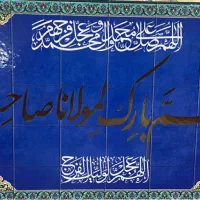 اللهم صل على محمد وآل محمد وعجل فرجهم
م بارك لمولانا صاح
اللهم عجل لوليك الفرج